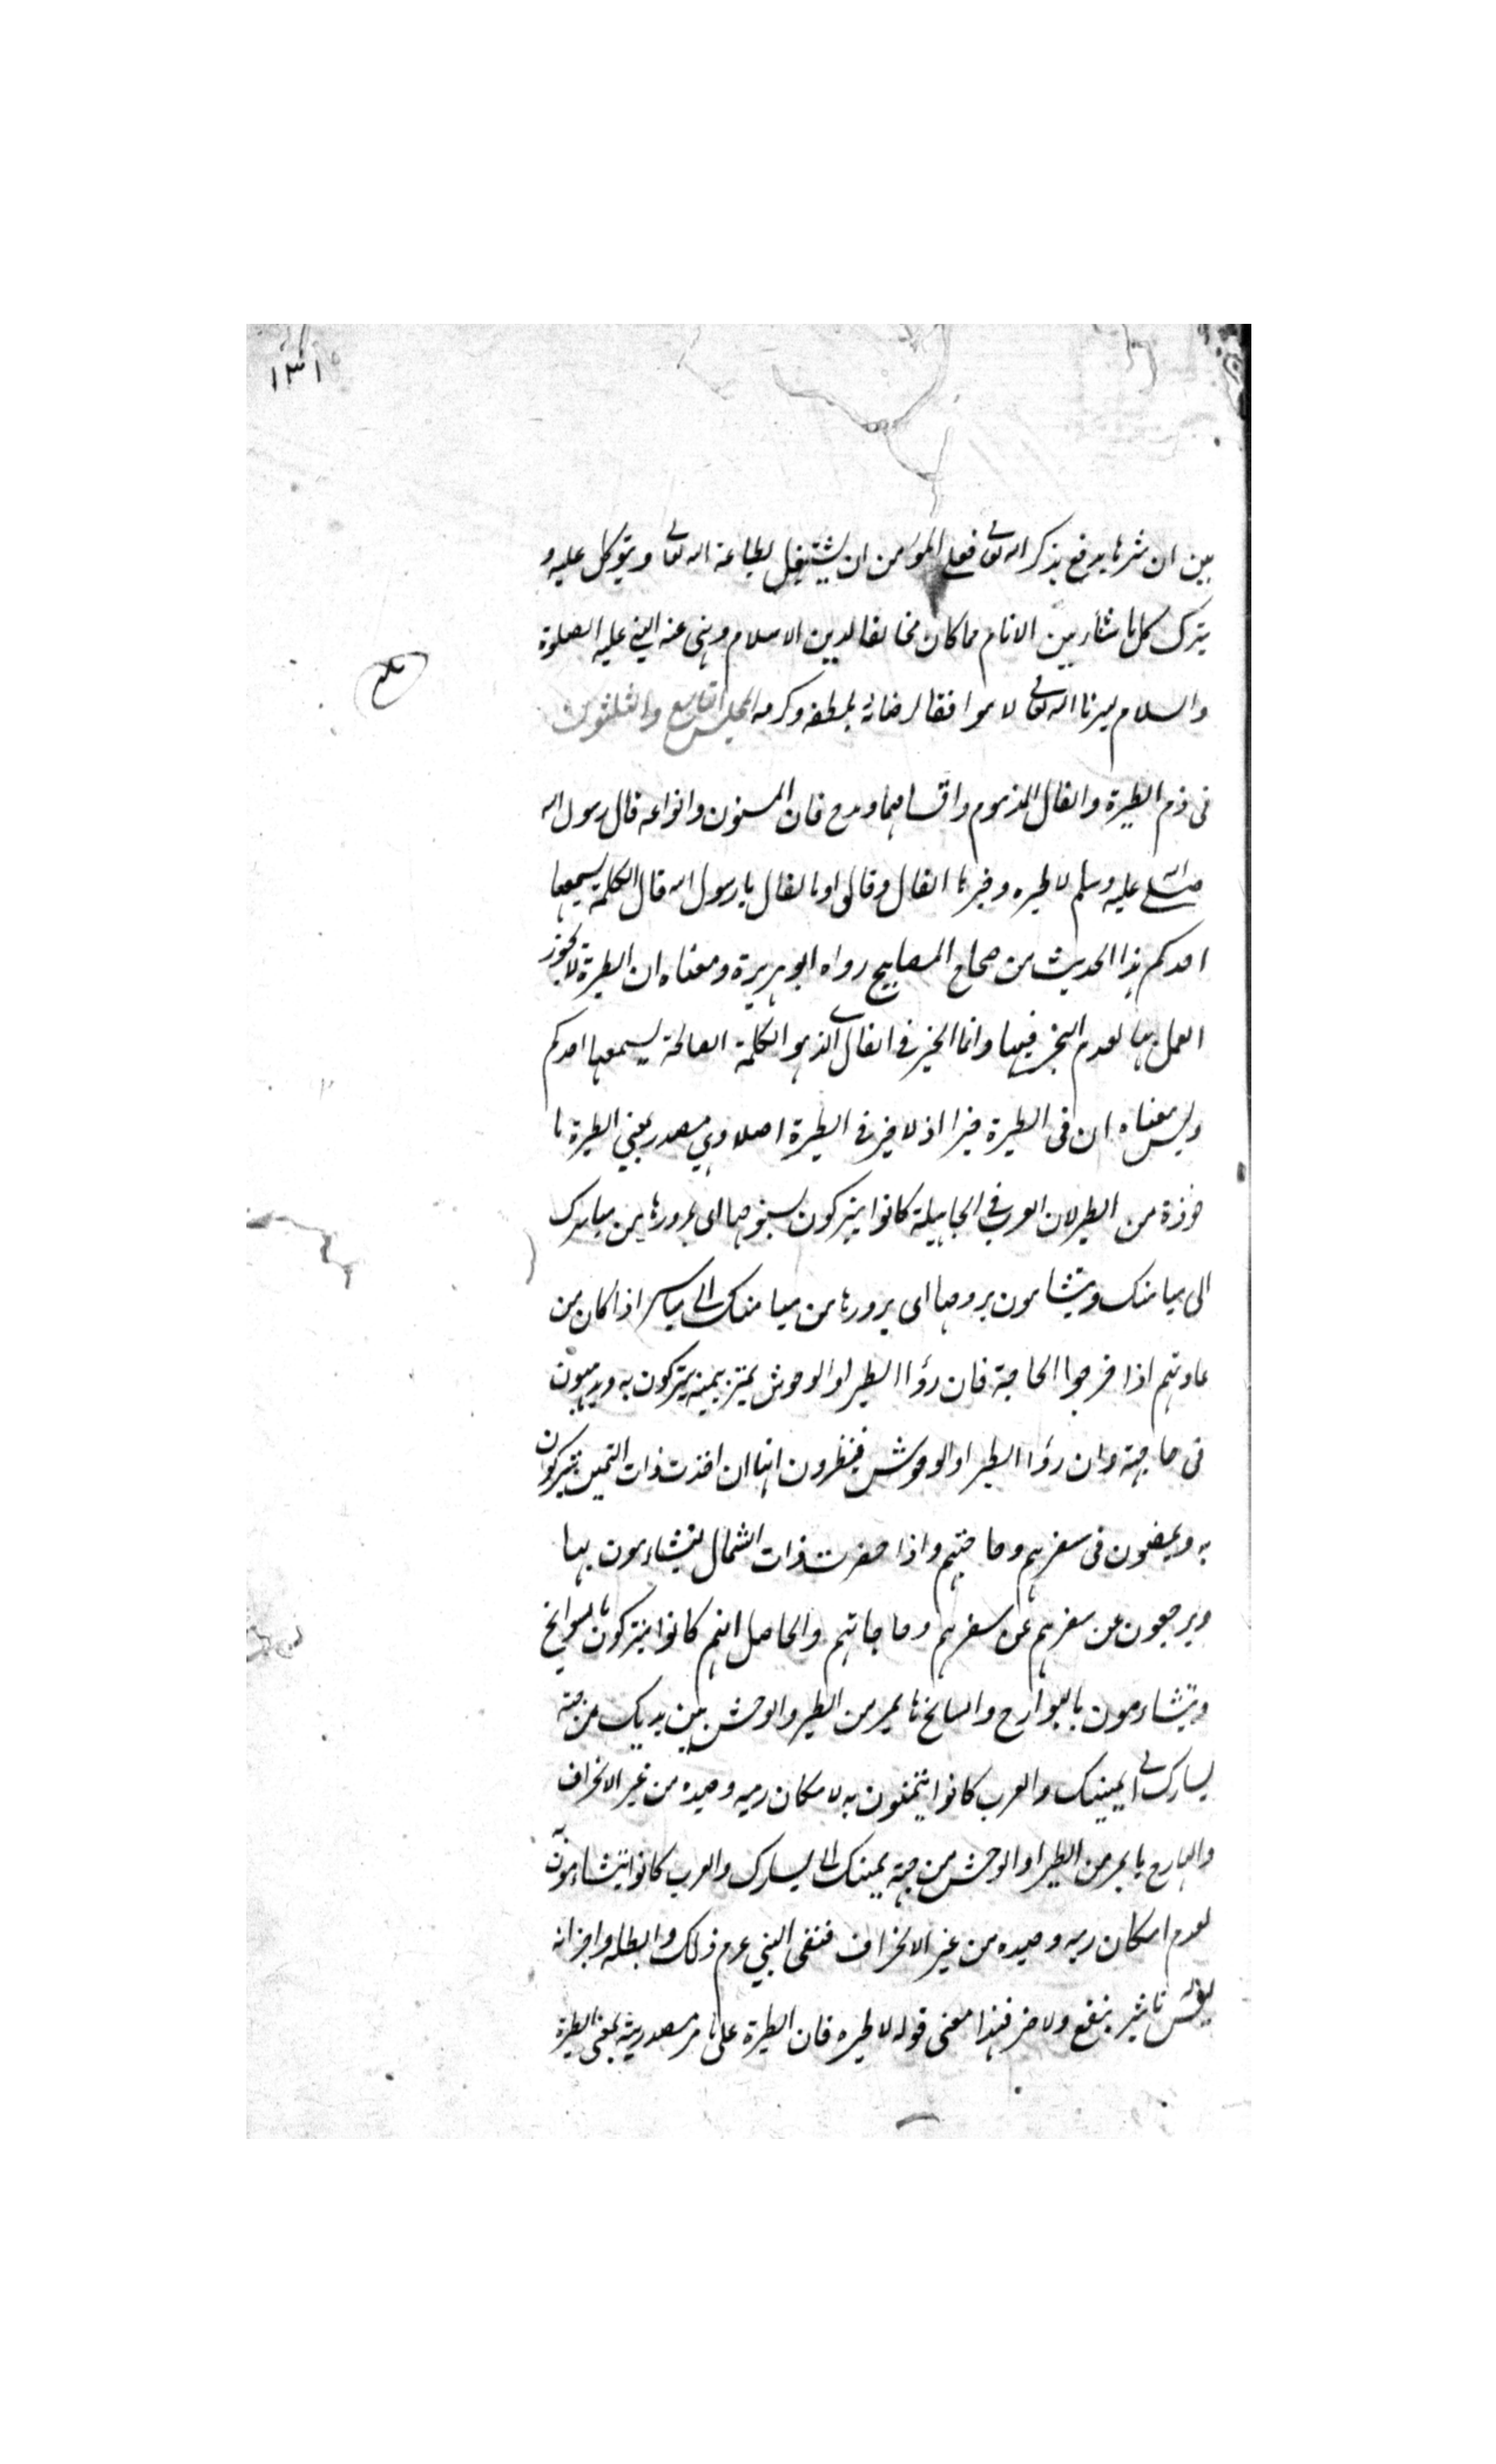 ١٣١
بين ان شرها يدفع بذكر الله تعالى فعلى المؤمن ان يشتغل بطاعة الله تعالى ويتوكل عليه و
يترك كل ما شار بين الانام مما كان مخالفا لدين الاسلام ونهى عنه النبي عليه الصلوة
والسلام يسرنا الله تعالى لا موافقا لرضائه بلطفه وكرمه المجلس التاسع والثلثون
فى ذم الطيرة والفال المذموم واقسامهما ومدح فان المسنون وانواعه قال رسول الله
صلى الله عليه وسلم لا طيره وخيرها الفال وقالوا وما لفال يا رسول الله قال الكلمة يسمعها
احدكم هذا الحديث من صحاح المصابيح رواه ابو هريرة ومعناه ان الطيرة لا يجوز
العمل بها لعدم الخير فيها وانما الخير فى الفال الذى هو الكلمة الصالحة يسمعها احدكم
وليس معناه ان فى الطيرة خيرا اذ لا خير فى الطيرة اصلا وهي مصدر بمعنى الطيرة ما
خوذة من الطير لان العرب فى الجاهيلة كانوا يتبركون بسنوحها اى بمرورها من مياسرك
الى ميامنك ويتشأمون بروحها اى يرورها من ميا منك الى مياسر اذا كان من
عادتهم اذا خرجوا الحاجة فان رؤا الطير او الوحوش يمتر يمينه يتبركون به ويذهبون
فى حاجة وان رؤا الطير او الوحوش فينظرون انها ان اخذت ذات اليمين يتبركون
به ويمضون فى سفرهم وحاجتهم واذا حضرت ذات الشمال يتشاءمون بها
ويرجعون عن سفرهم عن سفرهم وحاجاتهم والحاصل انهم كانوا يتبركون بالسوانح
ويتشاءمون بالبوارح والسانح ما يمر من الطير والوحش بين يديك من جهة
يسارك الى يمينك والعرب كانوا يتيمنون به لا مكان رميه وصيده من غير الانحراف
والبارح ما يمر من الطير او الوحش من جهة يمينك الى يسارك والعرب كانوا يتشاءمون به
لعدم امكان رميه وصيده من غير الانحراف فنفى النبي عم ذلك وابطله واخبر انه
ليس له تاثير بنفع ولا ضر فهذا معنى قوله لا طيره فان الطيرة على ما مر مصدرية بمعنى الطيرة